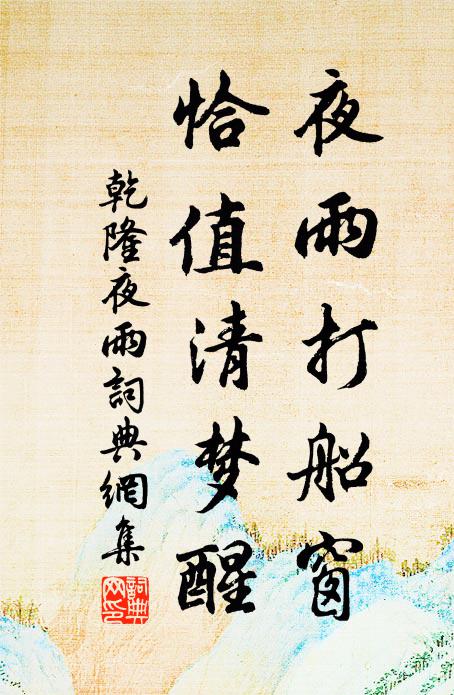 夜雨打船窗
恰值清梦醒
乾隆夜雨詞典網集
詞典
网印